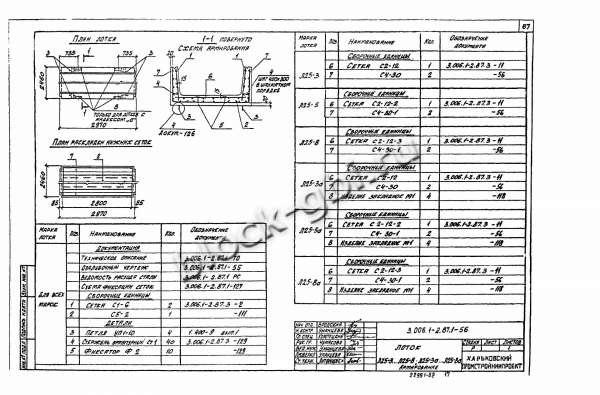 67
План лотка
1-1 повернуто
Схема армирования
735
1
735
3
3
2460
2970
Только для лотков с
индексом „а"
шаг 400×300
в шахматном
порядке
Докум.-126
План раскладки нижних сеток
7
2
2460
85
2800
85
2970
Марка лотка
Поз.
Наименование
Кол.
Обозначение документа
Документация
Техническое описание 3.006.1-2.87.1-ТО
Опалубочный чертеж 3.006.1-2.87.1-55
Ведомость расхода стали 3.006.1-2.87.1 РС
Схема фиксации сеток 3.006.1-2.87.1-127
Для всех марок
Сборочные единицы
1 Сетка С1-6 2 3.006.1-2.87.3-2
2 С5-2 1 -111
Детали
3 Петля УП1-10 4 1.400-9 вып.1
4 Стержень арматурный СТ-1 40 3.006.1-2.87.3-129
5 Фиксатор Ф2 10 -129
Марка лотка
Поз.
Наименование
Кол.
Обозначение документа
Сборочные единицы
Л25-3
6 Сетка С2-12 1 3.006.1-2.87.3-11
7 С4-30 2 -56
Сборочные единицы
Л25-5
6 Сетка С2-12-2 1 3.006.1-2.87.3-11
7 С4-30-1 2 -56
Сборочные единицы
Л25-8
6 Сетка С2-12-3 1 3.006.1-2.87.3-11
7 С4-30-1 2 -56
Сборочные единицы
Л25-3а
6 Сетка С2-12 1 3.006.1-2.87.3-11
7 С4-30 2 -56
8 Изделие закладное М1 4 -118
Сборочные единицы
Л25-5а
6 Сетка С2-12-2 1 3.006.1-2.87.3-11
7 С4-30-1 2 -56
8 Изделие закладное М1 4 -118
Сборочные единицы
Л25-8а
6 Сетка С2-12-3 1 3.006.1-2.87.3-11
7 С4-30-1 2 -56
8 Изделие закладное М1 4 -118
3.006.1-2.87.1-56
Лоток
Л25-3...Л25-8, Л25-3а...Л25-8а
Армирование
Стадия Лист Листов
Р 1
Харьковский
Промстройниипроект